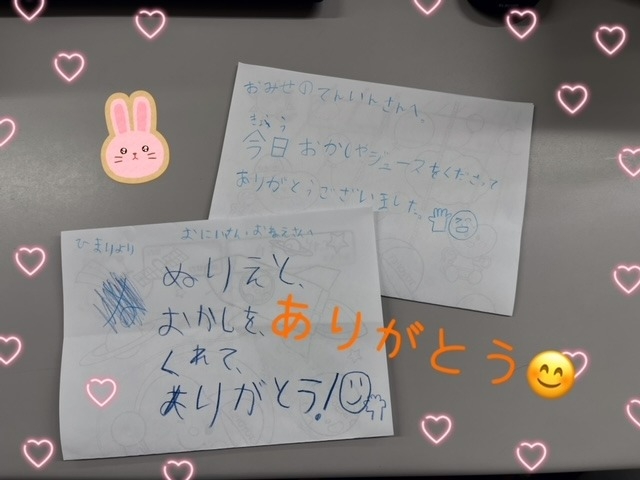 おみせのてんいんさんへ、
きょう
今日おかしやジュースをくださって
ありがとうございました。
ひまりより
おにいさんおねえさんへ
ぬりえと、
おかしを、
くれて、
ありがとう!
ありがとう